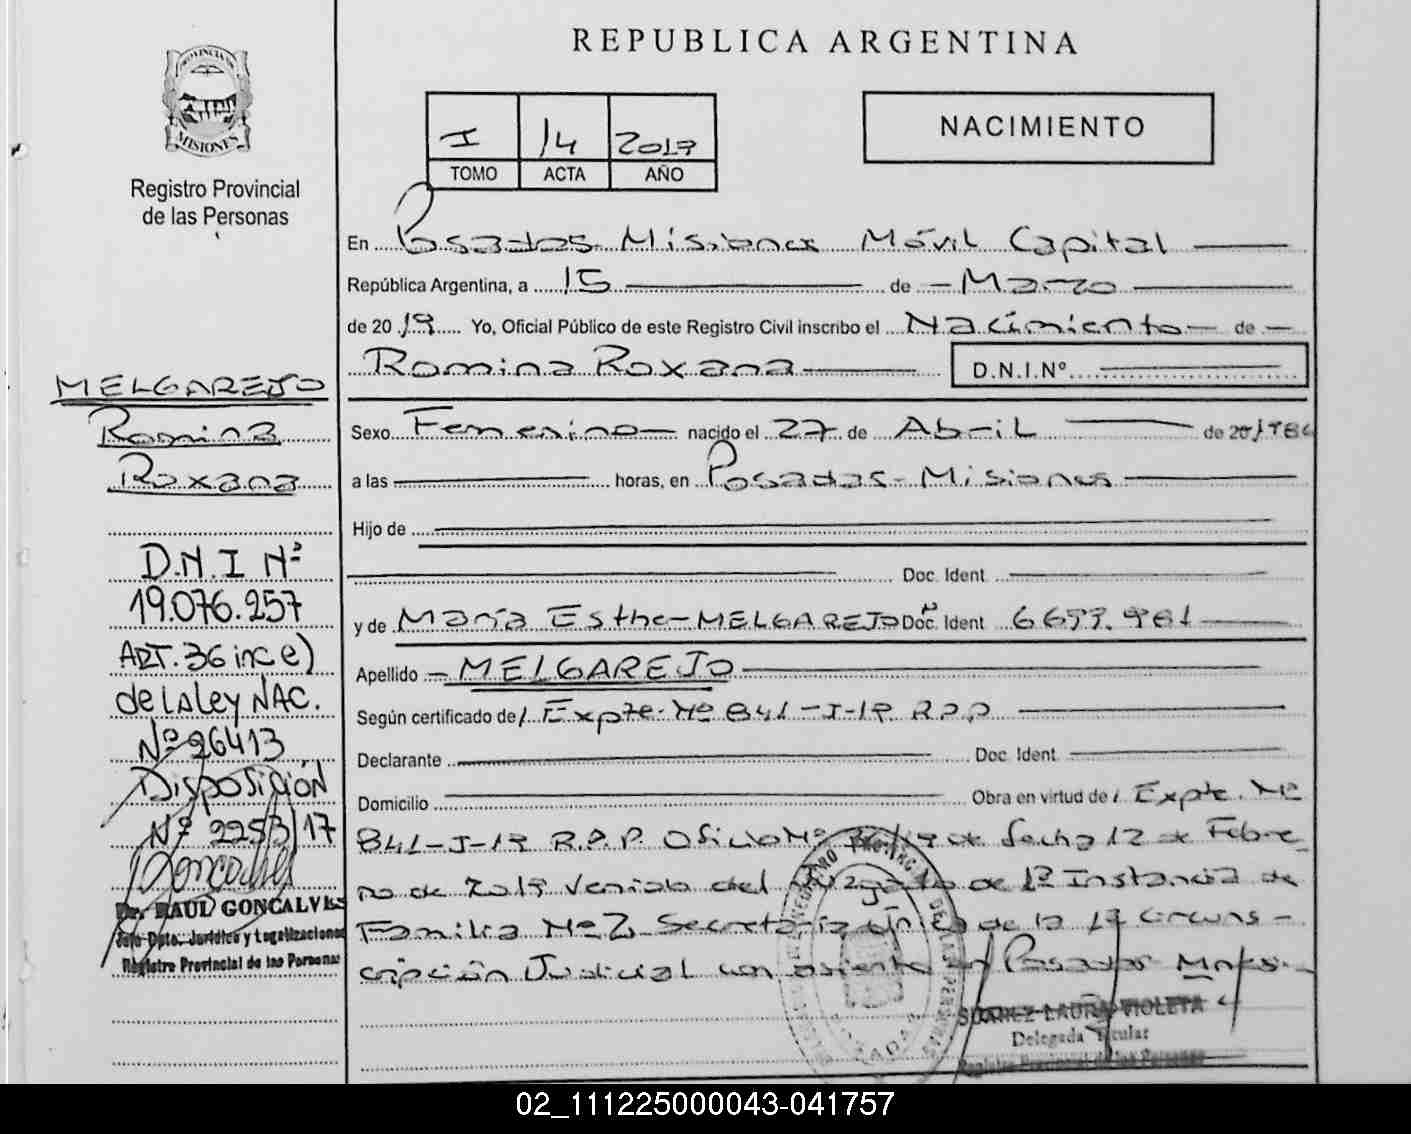 PROVINCIA DE
MISIONES
Registro Provincial
de las Personas
REPUBLICA ARGENTINA
I 14 2019
TOMO ACTA AÑO
NACIMIENTO
En Posadas Misiones Móvil Capital
República Argentina, a 15 de Marzo
de 2019 Yo, Oficial Público de este Registro Civil inscribo el Nacimiento de
Romina Roxana D.N.I.Nº
Sexo Femenino nacido el 27 de Abril de 20
a las horas, en Posadas - Misiones
Hijo de
Doc. Ident
y de María Esther MELGAREJO Doc. Ident
Apellido MELGAREJO
Según certificado de Expte. Nº 841-I-19 R.P.P
Declarante Doc. Ident.
Domicilio Obra en virtud de Expte. Nº
841-I-19 R.P.P. Oficio Nº de fecha 12 de Febre
ro de 2019 venido del Juzgado de 1º Instancia de
Familia Nº 2 Secretaría única de la 1ª circuns-
cripción Judicial con asiento en Posadas
SUAREZ LAURA VIOLETA
Delegada Titular
Registro Provincial de las Personas
MELGAREJO
Romina
Roxana
D.N.I Nº
19.076.257
ART. 36 inc e)
de LA Ley NAC.
Nº 26413
Disposición
Nº 2253/17
Dr. RAUL GONCALVES
Jefe Dpto. Jurídico y Legalizaciones
Registro Provincial de las Personas
02_111225000043-041757